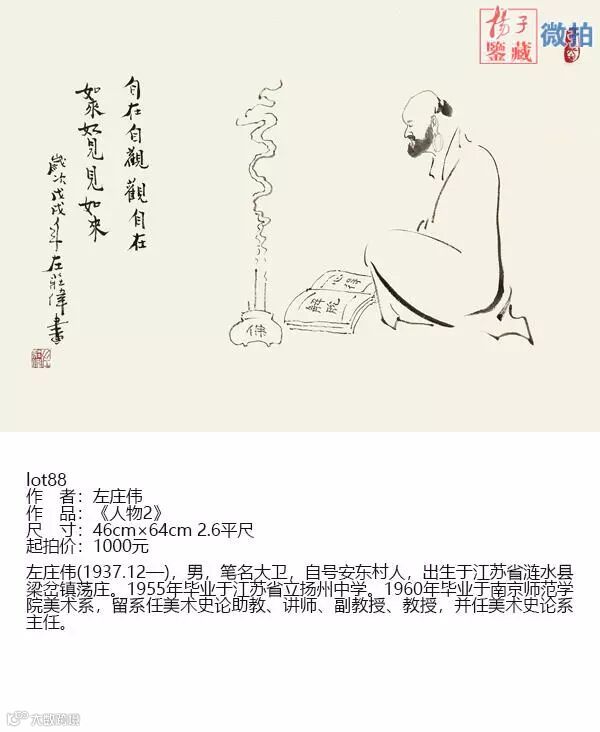 揚子
鑒藏
微拍
自在自觀觀自在
如來如見見如來
歲次戊戌年左莊偉書
心得
解脫
佛
lot88
作 者：左庄伟
作 品：《人物2》
尺 寸：46cm×64cm 2.6平尺
起拍价：1000元
左庄伟(1937.12—)，男，笔名大卫，自号安东村人，出生于江苏省涟水县
梁岔镇荡庄。1955年毕业于江苏省立扬州中学。1960年毕业于南京师范学
院美术系，留系任美术史论助教、讲师、副教授、教授，并任美术史论系
主任。
大数跨境